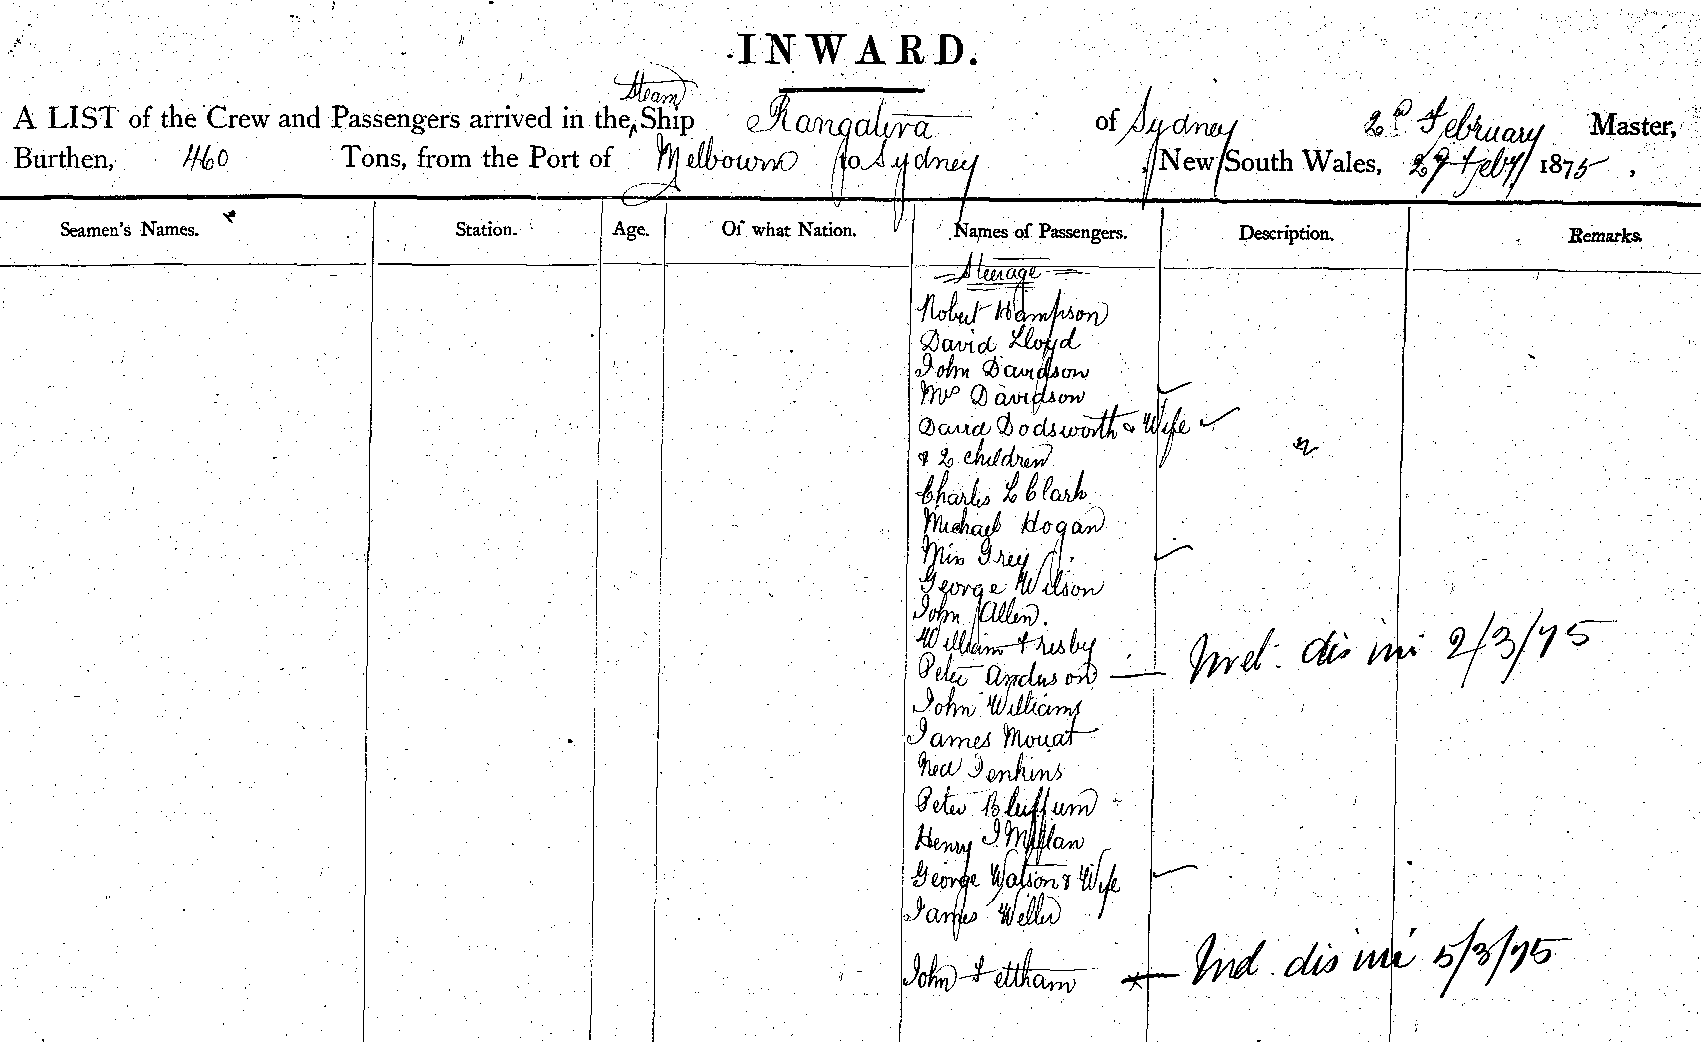 INWARD.
Steam
A LIST of the Crew and Passengers arrived in the Ship Rangatira of Sydney 2nd February Master,
Burthen, 460 Tons, from the Port of Melbourn to Sydney New South Wales, 27 Feby 1875.
Seamen's Names. Station. Age. Of what Nation. Names of Passengers. Description. Remarks.
Steerage
Robert Hampson
David Lloyd
John Davidson
Mrs Davidson
David Dodsworth & Wife
& 2 children
Charles L Clark
Michael Hogan
Miss Grey
George Wilson
John Allen.
William Fresby
Peter Anderson
John Williams
James Mouat
Ned Jenkins
Peter
Henry J.
George Watson & Wife
James Weller
John Fettham
dis 2/3/75
dis 5/3/75